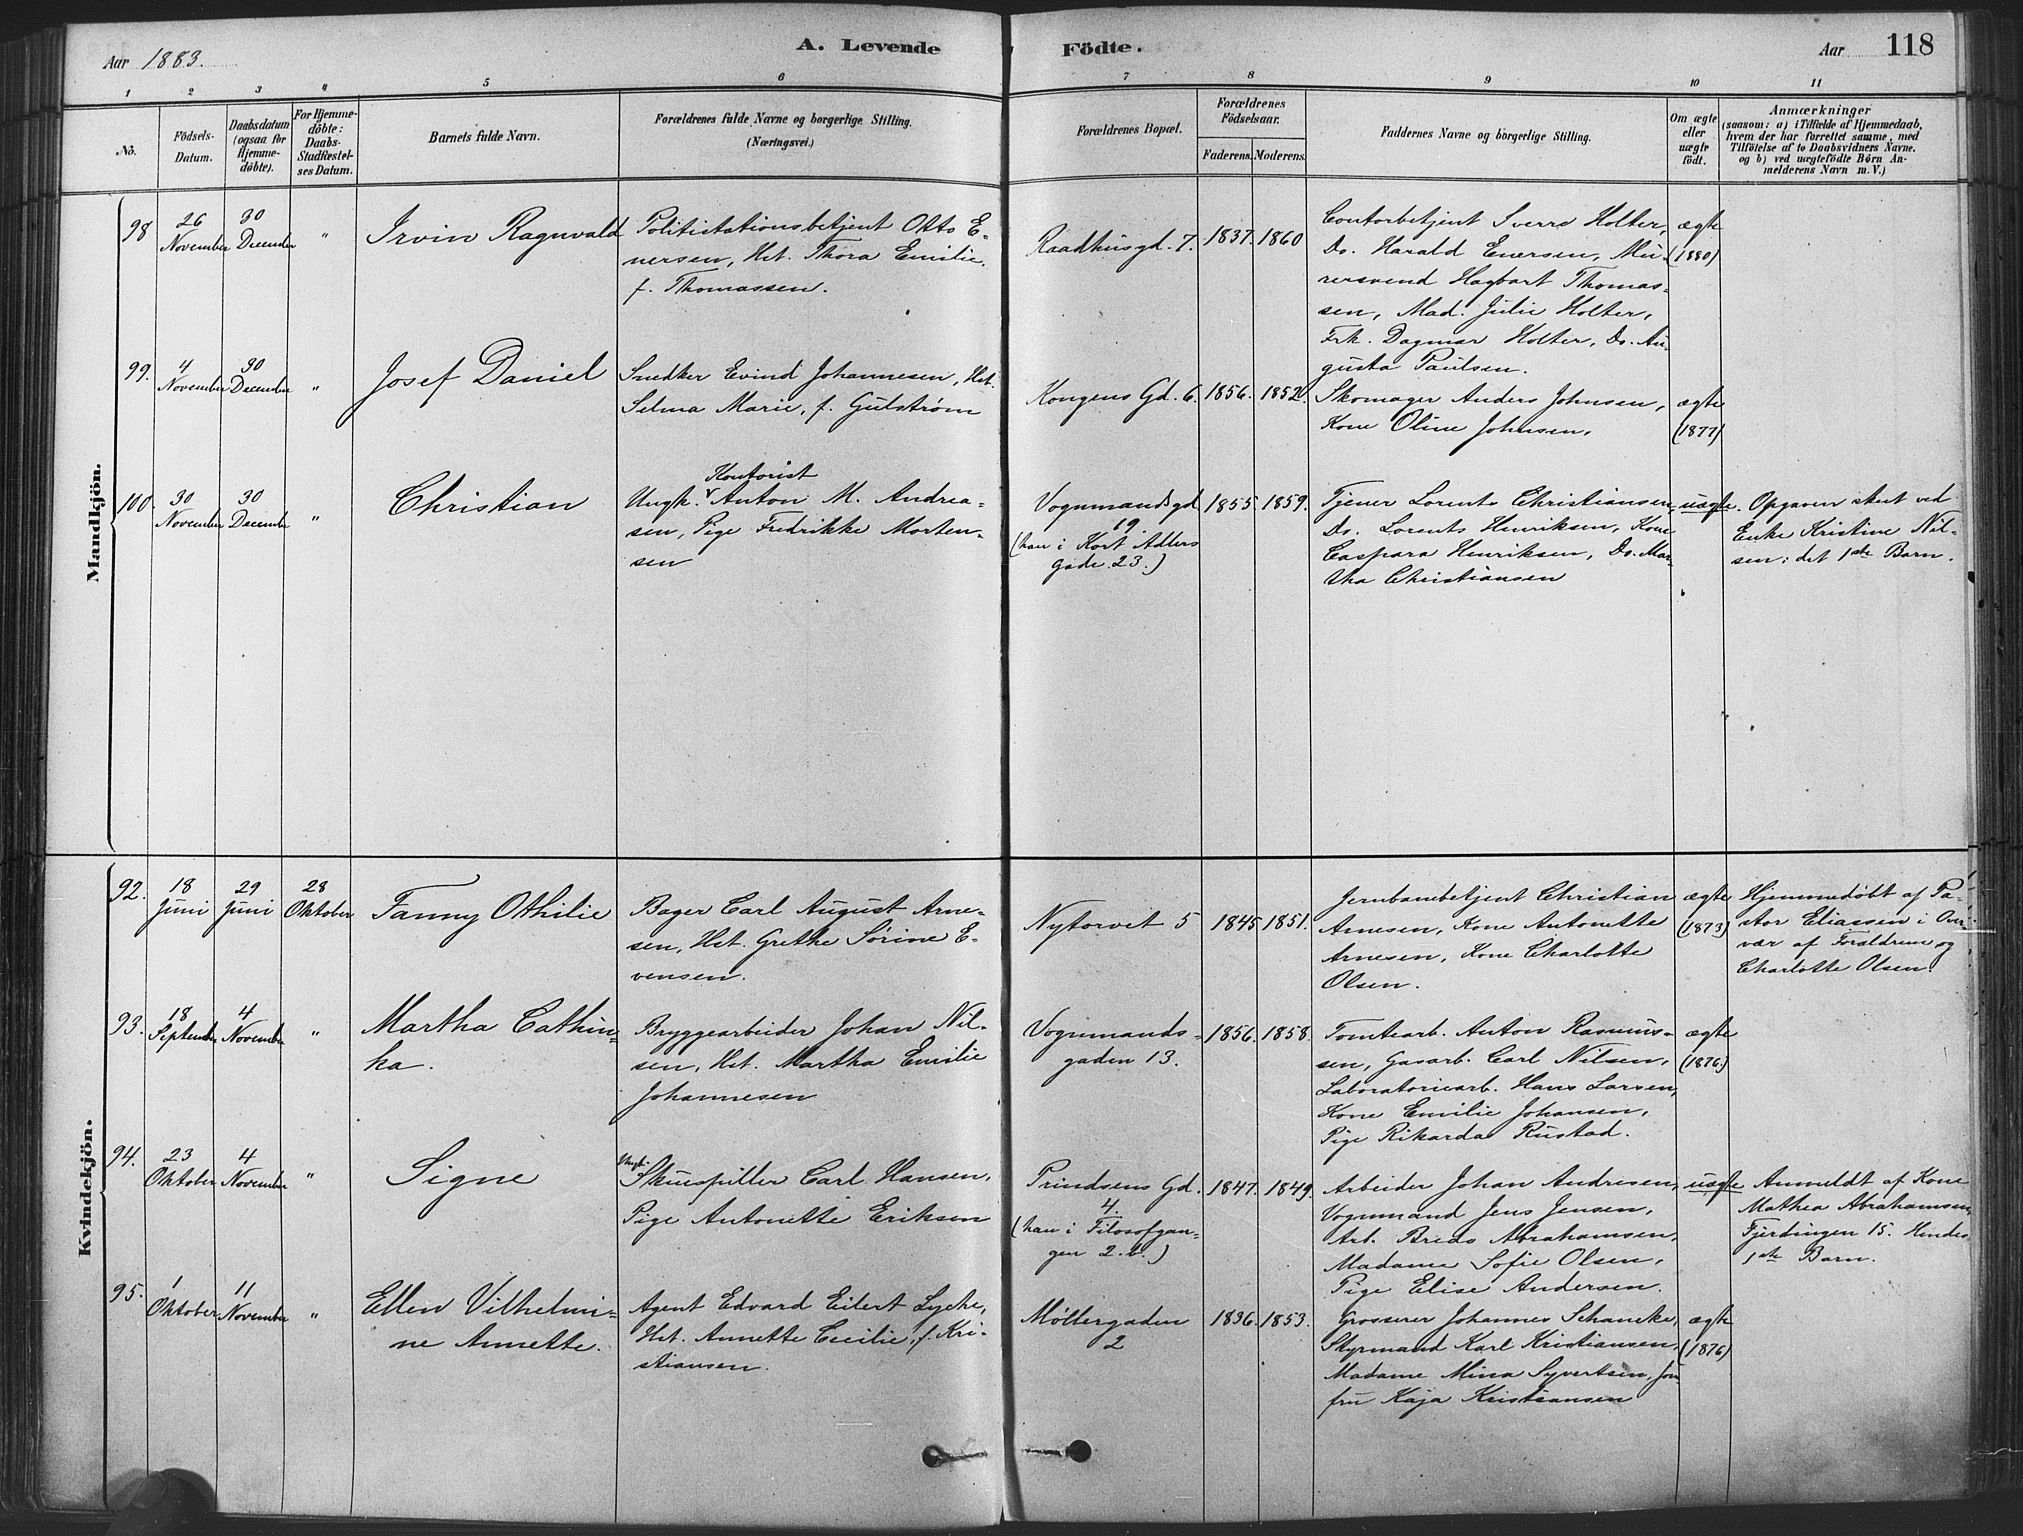 Aar 1883.
A. Levende
Födte.
Aar
118
1 2 3 4 5 6 7 8 9 10 11
No.
Födsels-
Datum.
Daabsdatum
(ogsaa for
Hjemme-
döbte).
For Hjemme-
döbte:
Daabs-
Stadfæstel-
ses Datum.
Barnets fulde Navn.
Forældrenes fulde Navne og borgerlige Stilling.
(Næringsvei.)
Forældrenes Bopæl.
Forældrenes
Födselsaar.
Faderens.
Moderens.
Faddernes Navne og borgerlige Stilling.
Om ægte
eller
uægte
födt.
Anmærkninger
(saasom: a) i Tilfælde af Hjemmedaab,
hvem der har forrettet samme, med
Tilföielse af to Daabsvidners Navne.
og b) ved uægtefödte Börn An-
melderens Navn m. V.)
Mandkjön.
98
26
November
30
December
"
Irvin Ragnvald
Politistationsbetjent Otto E-
nersen, Hst. Thora Emilie,
f. Thomassen.
Raadhusgd. 7.
1837.
1860
Contorbetjent Sverre Holter,
Do. Harald Enersen, Mu-
rersvend Hagbart Thomas-
sen, Mad. Julie Holter,
Frk. Dagmar Holter, Do. Au-
gusta Paulsen.
ægte
(1880)
99.
4
November
30
December
"
Josef Daniel
Snedker Evind Johannesen, Hst.
Selma Marie, f. Gulstrøm
Kongens Gd. 6.
1856.
1852.
Skomager Anders Johnsen,
Kone Oline Johnsen.
ægte
(1877)
100.
30
November
30
December
"
Christian
Kontorist
Ungk. Anton M. Andrea-
sen, Pige Fredrikke Morten-
sen
Vognmandsgd
19.
(han i Kort Adlers
gade 23.)
1855.
1859.
Tjener Lorents Christiansen,
Do. Lorents Henriksen, Kone
Caspara Henriksen, Do. Mar-
tha Christiansen
uægte.
Opgaven skeet ved
Enke Kristine Nil-
sen: det 1ste Barn.
Kvindekjön.
92.
18
Juni
29
Juni
28
Oktober
Fanny Othilie
Bager Carl August Arne-
sen, Hst. Grethe Sørine E-
vensen.
Nytorvet 5
1845
1851.
Jernbanebetjent Christian
Arnesen, Kone Antonette
Arnesen, Kone Charlotte
Olsen.
ægte
(1873)
Hjemmedøbt af Pa-
stor Eliassen i Over-
vær af Forældrene og
Charlotte Olsen.
93.
18
September
4
November
"
Martha Cathin-
ka.
Bryggearbeider Johan Nil-
sen, Hst. Martha Emilie
Johannesen
Vognmands-
gaden 13.
1856.
1858.
Tomtearb. Anton Rasmus-
sen, Gasarb. Carl Nilsen,
Laboratoriearb. Hans Larsen,
Kone Emilie Johansen,
Pige Rikarda Rustad.
ægte
(1876.)
94.
23
Oktober
4
November
"
Signe
Ungk.
Skuespiller Carl Hansen,
Pige Antonette Eriksen
Prindsens Gd.
4.
(han i Filosofgan-
gen 2.b.)
1847.
1849.
Arbeider Johan Andresen,
Vognmand Jens Jensen,
Arb. Brede Abrahamsen,
Madame Sofie Olsen,
Pige Elise Andersen.
uægte
Anmeldt af Kone
Mathea Abrahamsen,
Fjerdingen 15. Hendes
1ste Barn.
95.
1
Oktober
11
November
"
Ellen Vilhelmi-
ne Annette.
Agent Edvard Eilert Lyche,
Hst. Annette Cecilie, f. Kri-
stiansen.
Møllergaden
2
1836.
1853.
Grosserer Johannes Schancke,
Styrmand Karl Kristiansen,
Madame Mina Syvertsen, Jom
fru Kaja Kristiansen
ægte
(1876)